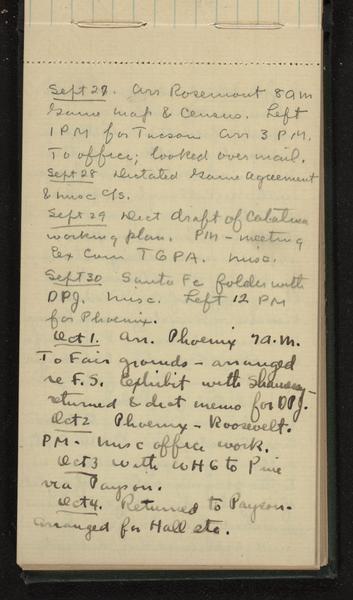 Sept 27. Arr Rosemont 8 am
Game map & Census. Left
1 PM for Tucson Arr 3 PM.
To office; looked over mail.
Sept 28 Dictated Game Agreement
& misc c/s.
Sept 29 Dict draft of Catalina
working plan. PM - meeting
Ex Com TGPA. Misc.
Sept 30 Santa Fe folder with
DPJ. Misc. Left 12 PM
for Phoenix.
Oct 1. Arr. Phoenix 7 a.m.
To Fair grounds - arranged
re F.S. Exhibit with
returned & dict memo for DPJ.
Oct 2 Phoenix - Roosevelt.
PM - Misc office work.
Oct 3 With WHG to Pine
via Payson.
Oct 4. Returned to Payson.
arranged for Hall etc.